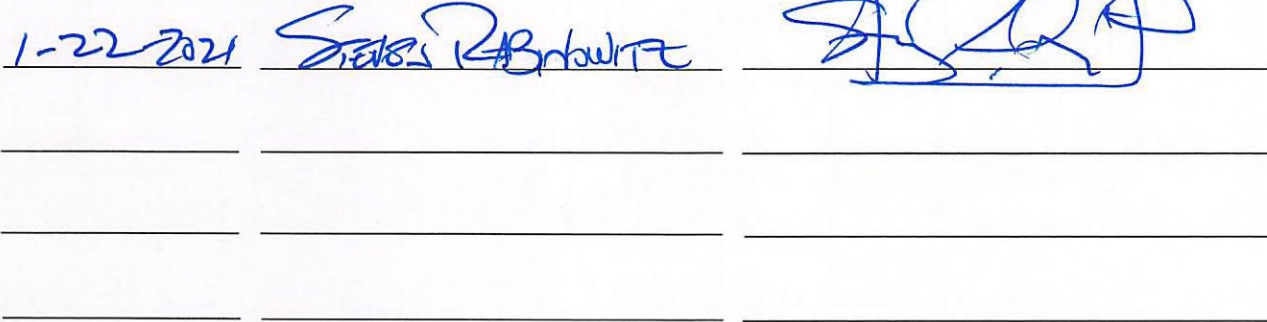 1-22-2021 STEVEN RABINOWITZ